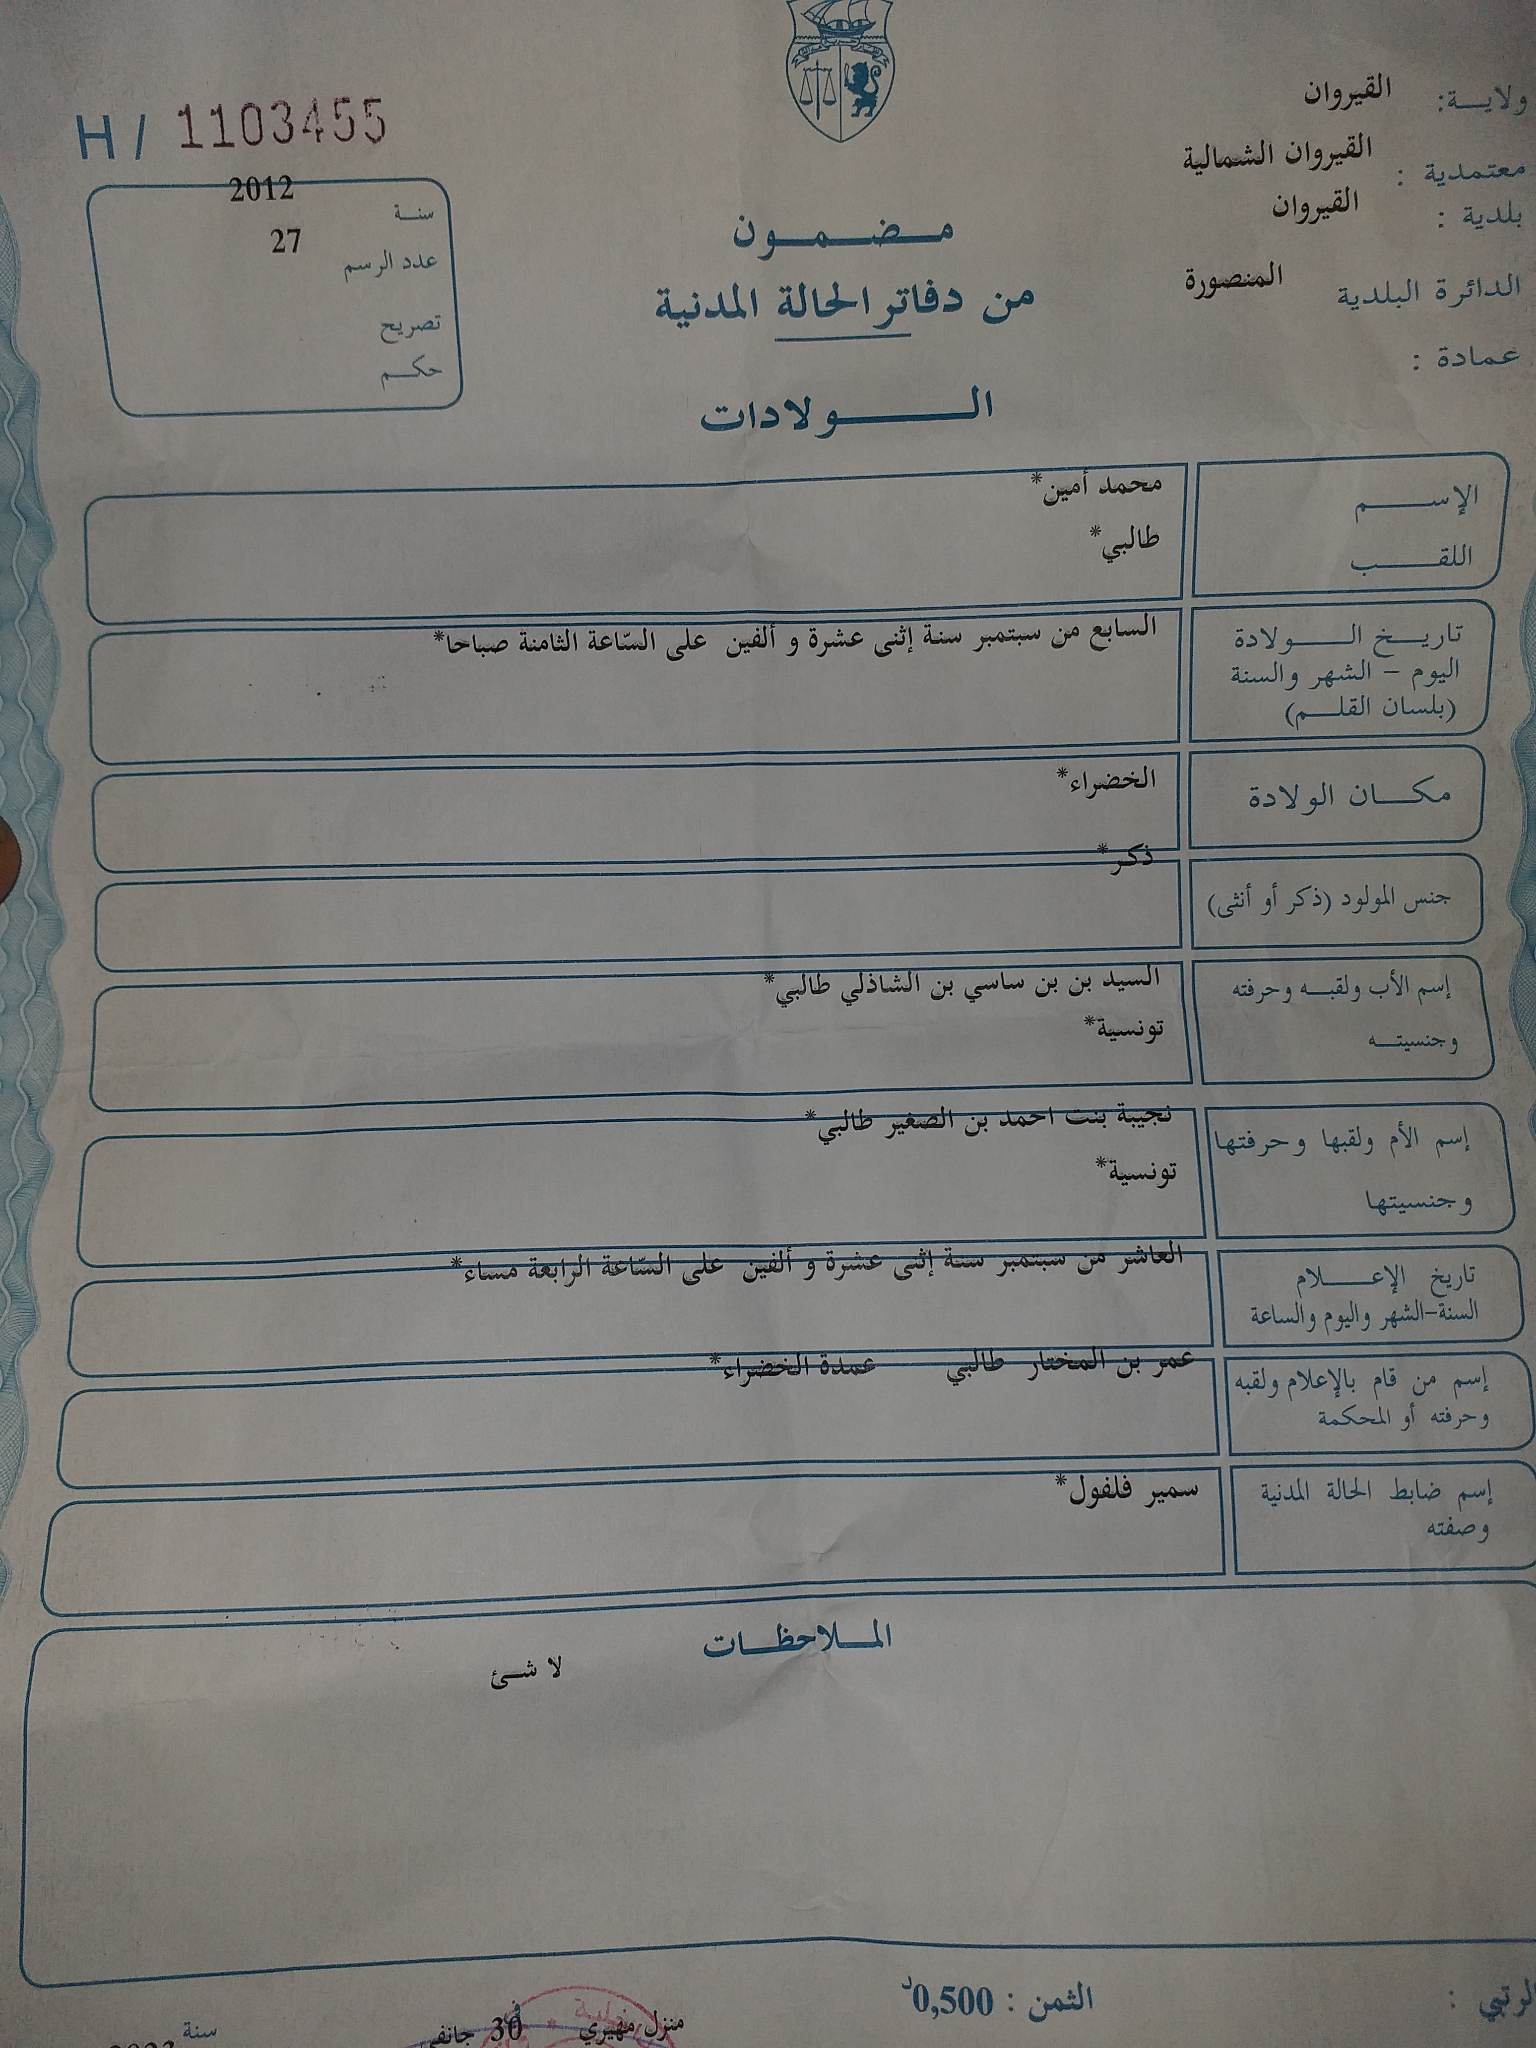 ولاية: القيروان
معتمدية : القيروان الشمالية
بلدية : القيروان
الدائرة البلدية المنصورة
عمادة :
H / 1103455
سنة 2012
عدد الرسم 27
تصريح
حكم
مضمون
من دفاتر الحالة المدنية
الولادات
الإسم محمد أمين*
اللقب طالبي*
تاريخ الولادة السابع من سبتمبر سنة إثنى عشرة و ألفين على السّاعة الثامنة صباحا*
اليوم - الشهر والسنة
(بلسان القلم)
مكان الولادة الخضراء*
جنس المولود (ذكر أو أنثى) ذكر*
إسم الأب ولقبه وحرفته السيد بن بن ساسي بن الشاذلي طالبي*
وجنسيته تونسية*
إسم الأم ولقبها وحرفتها نجيبة بنت احمد بن الصغير طالبي*
وجنسيتها تونسية*
تاريخ الإعلام العاشر من سبتمبر سنة إثنى عشرة و ألفين على السّاعة الرابعة مساء*
السنة-الشهر واليوم والساعة
إسم من قام بالإعلام ولقبه عمر بن المختار طالبي عمدة الخضراء*
وحرفته أو المحكمة
إسم ضابط الحالة المدنية سمير فلفول*
وصفته
الملاحظات
لا شئ
الثمن : 0,500د
منزل مهيري في 30 جانفي سنة